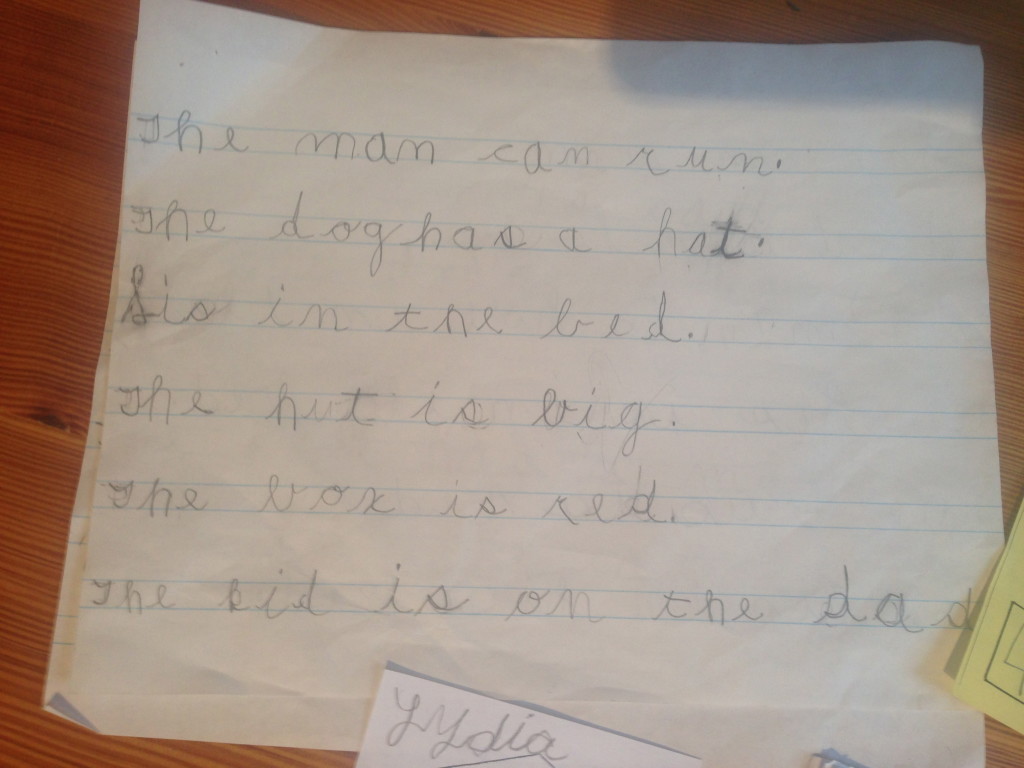 The man can run.
The dog has a hat.
Sis in the bed.
The hut is big.
The box is red.
The kid is on the dad
Lydia